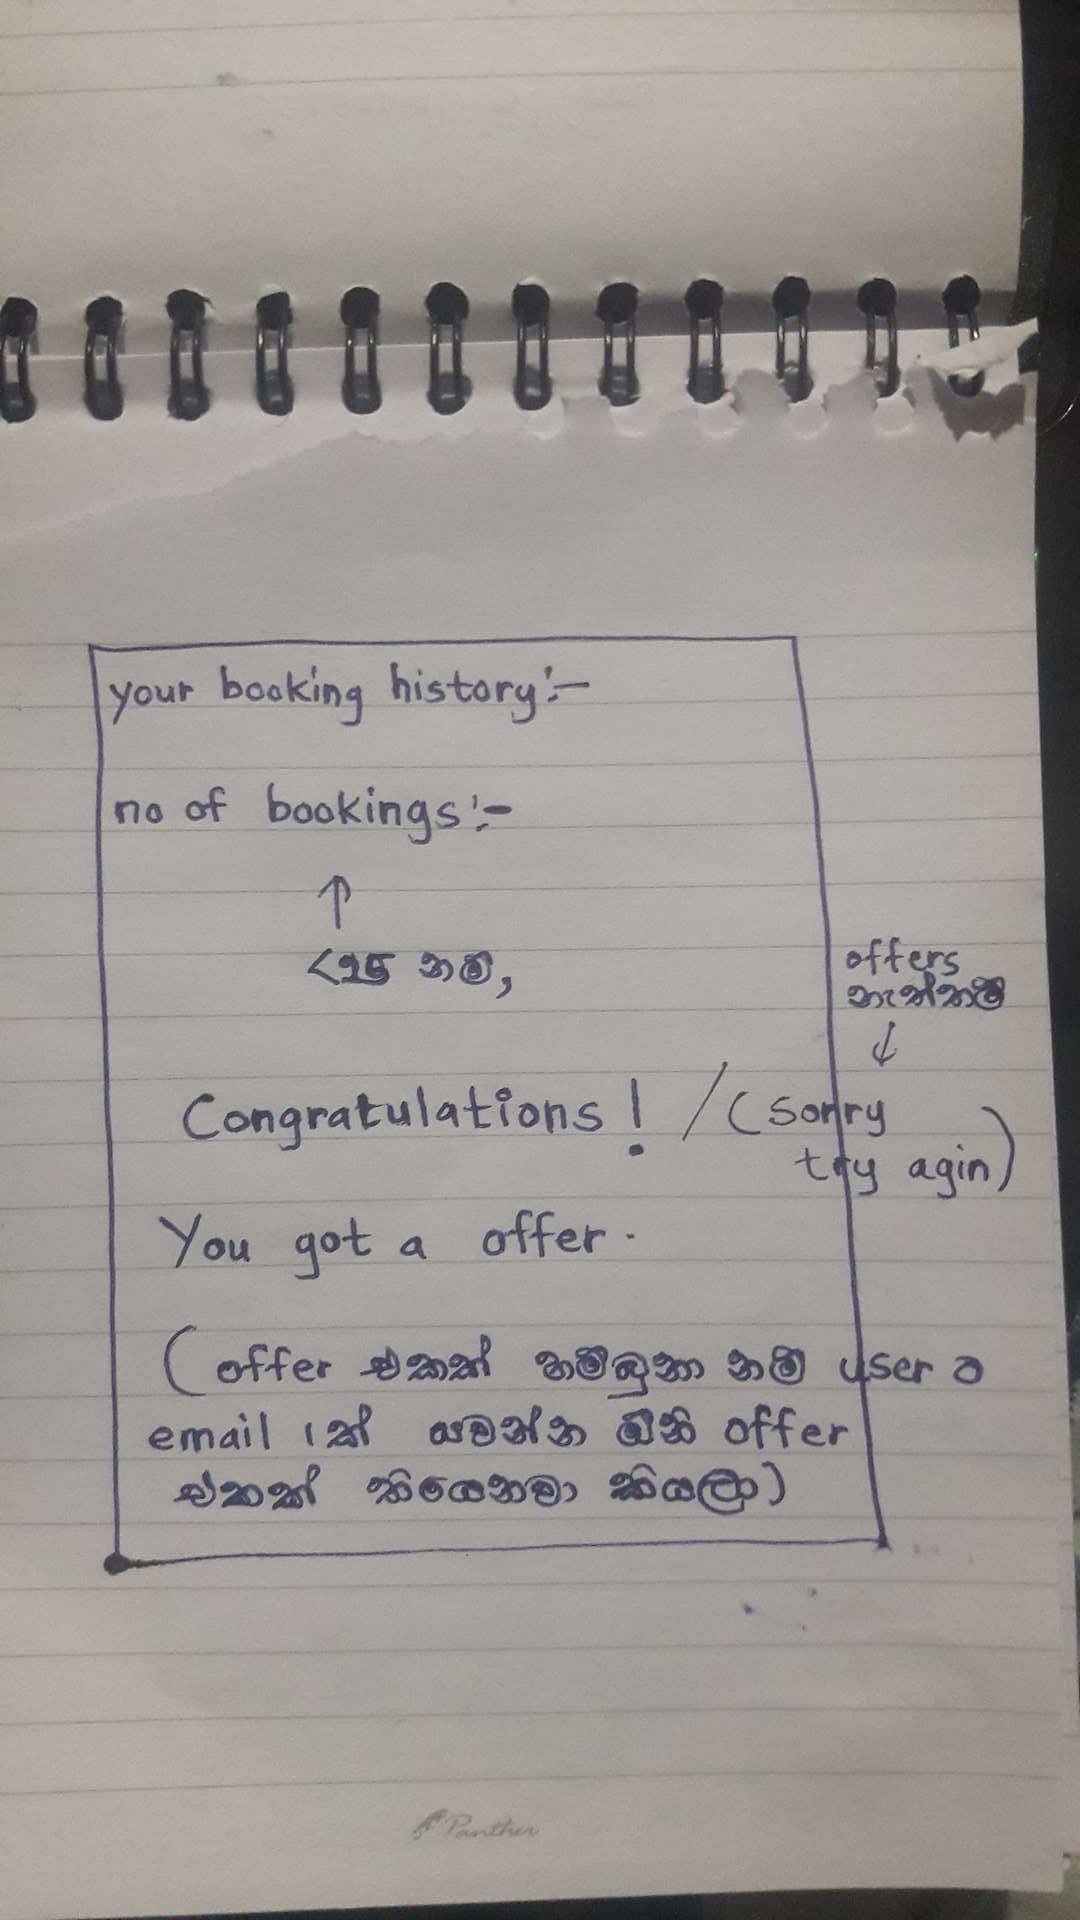 your booking history:-
no of bookings:-
↑
<25 නම්,
offers
නැත්නම්
↓
Congratulations! / (sorry
try agin)
You got a offer.
(offer එකක් හම්බුනා නම් user ට
email 1ක් යවන්න ඕනි offer
එකක් තියෙනවා කියලා)
Panther